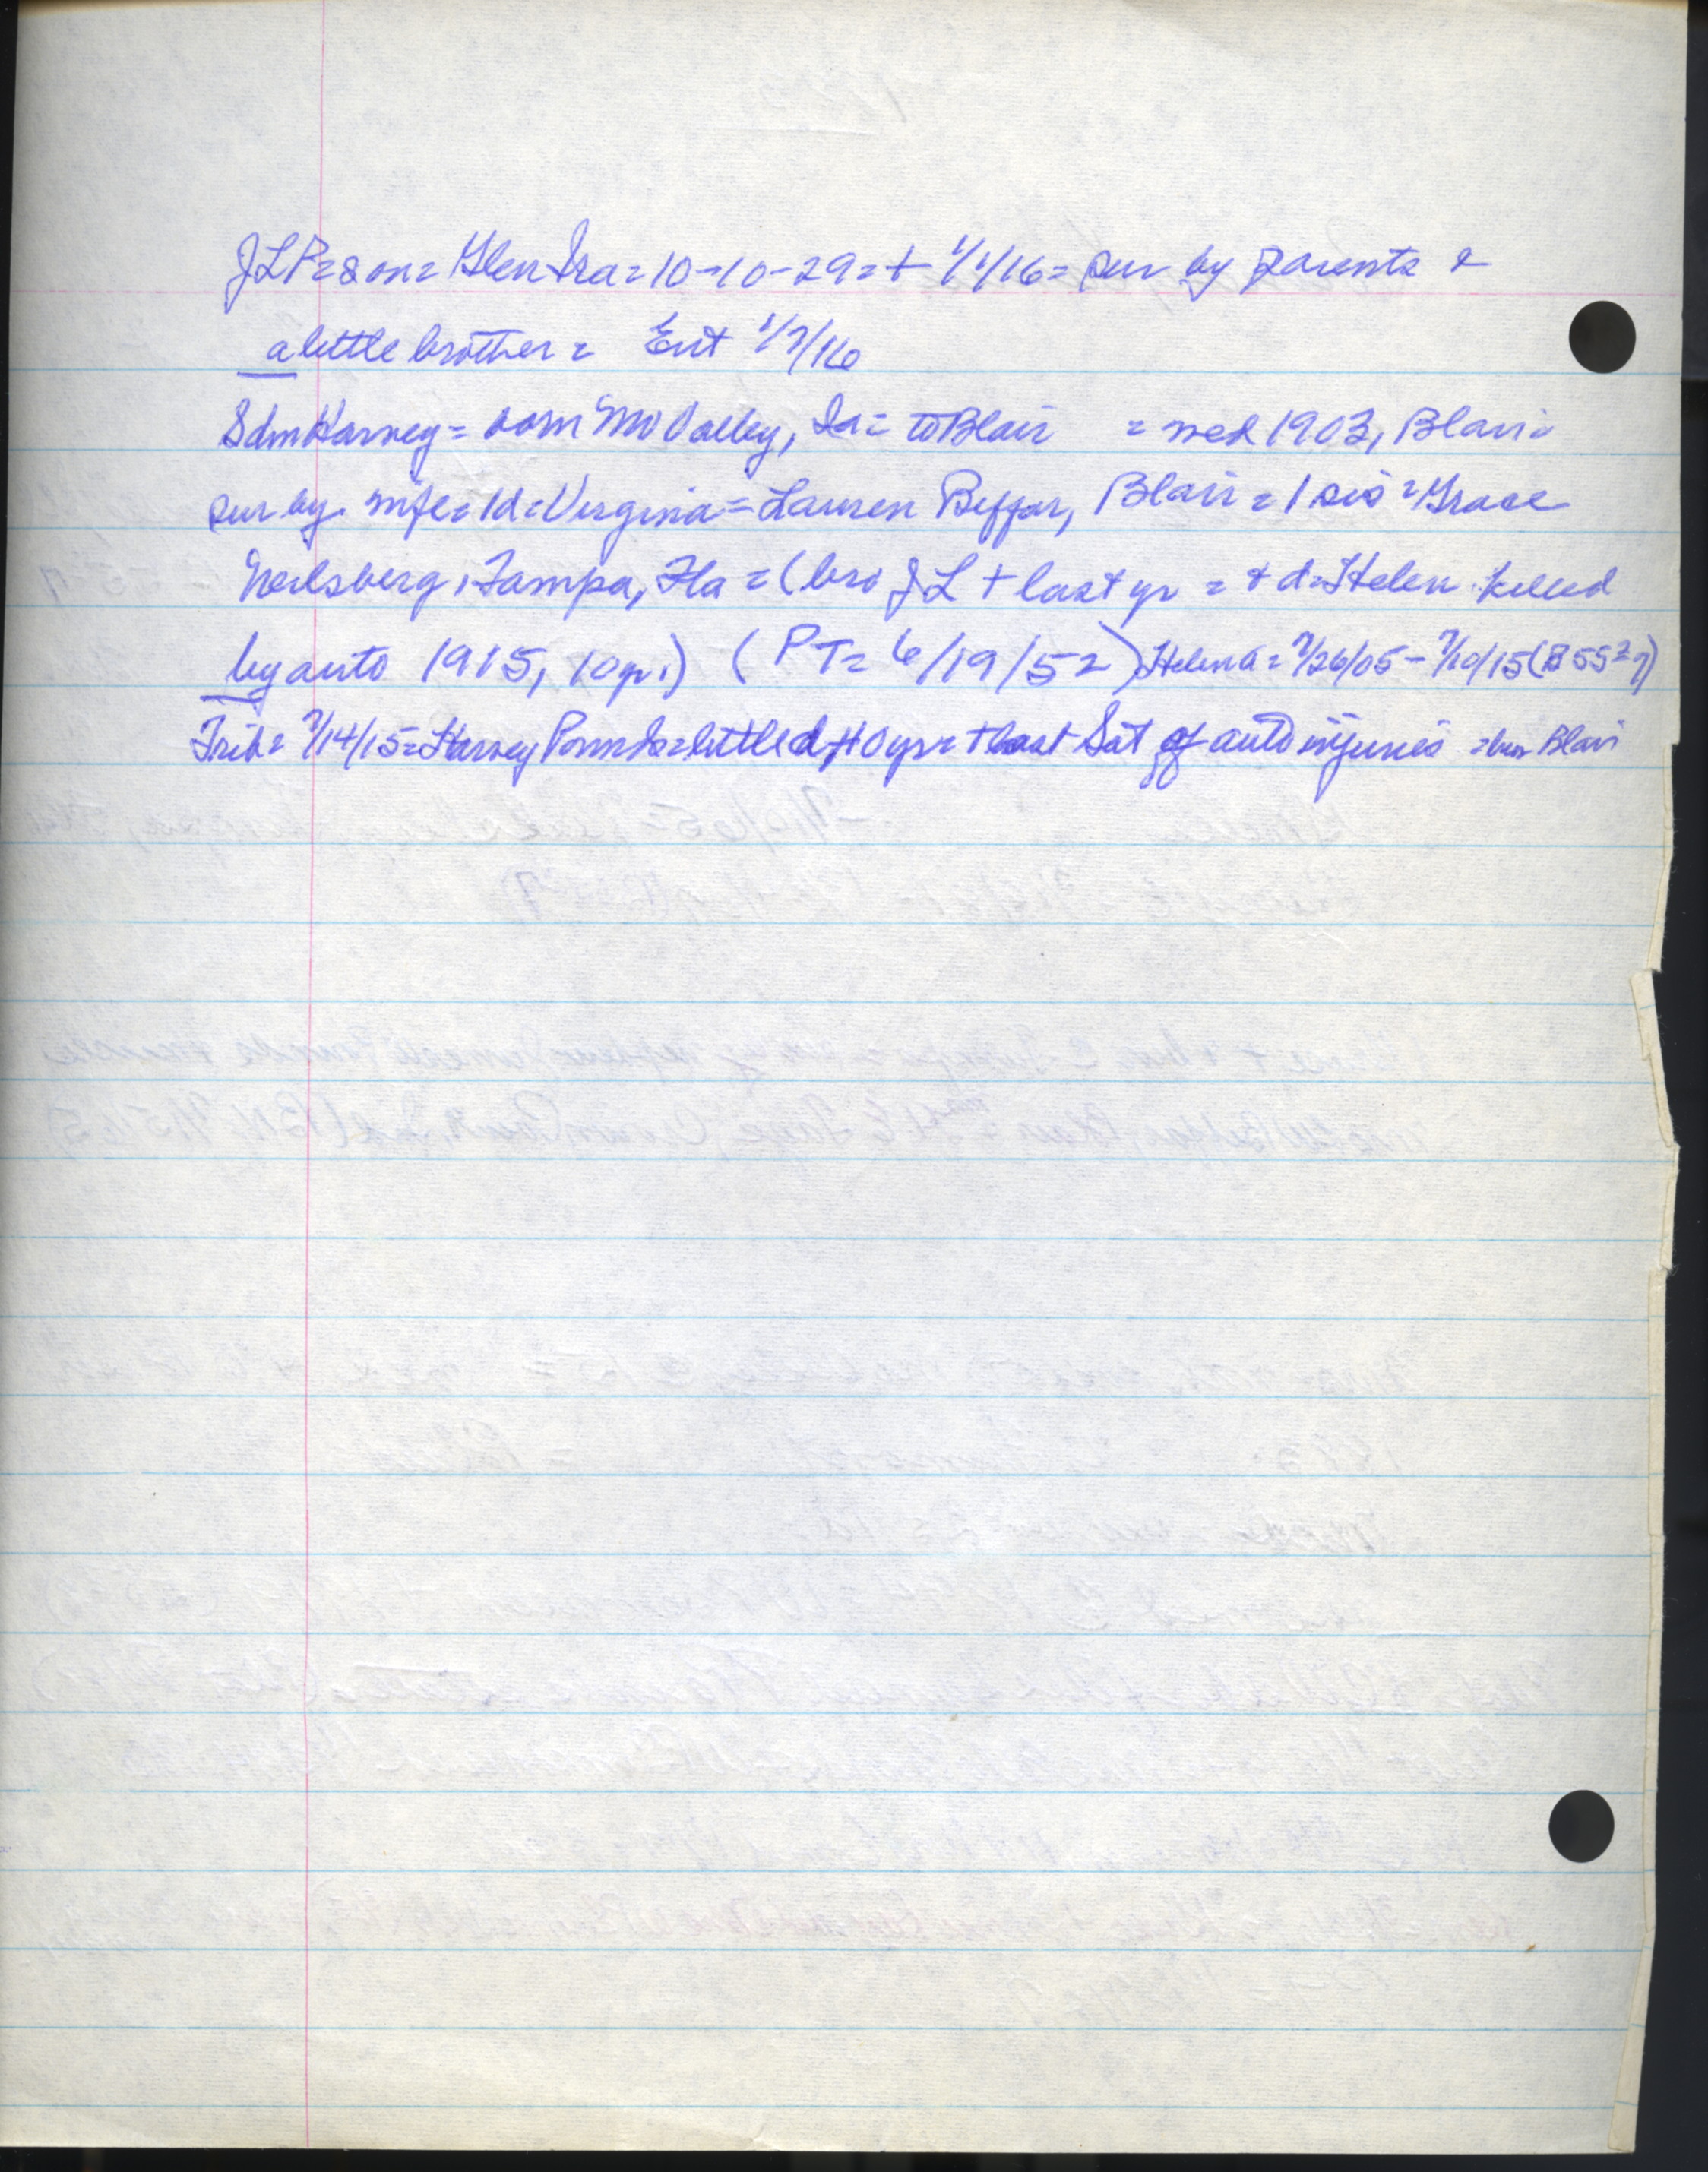 JLP = son = Glen Ira = 10-10-29 = + 1/1/16 = sur by parents &
a little brother = Ent 1/7/16
Sdm Harvey = born Mo Valley, Ia = to Blair = med 1903, Blair =
sur by wife = 1d = Virginia = Lauren Beffar, Blair = 1 sis = Grace
Neilsberg, Tampa, Fla = (bro JL + last yr = + d = Helen killed
by auto 1915, 10 yr.) (PT = 6/19/52) Helen a = 7/26/05 - 7/10/15 (B 55 2 7)
Trib = 7/14/15 = Harvey Pounds = little d, 10 yr = + last Sat of auto injuries = bur Blair